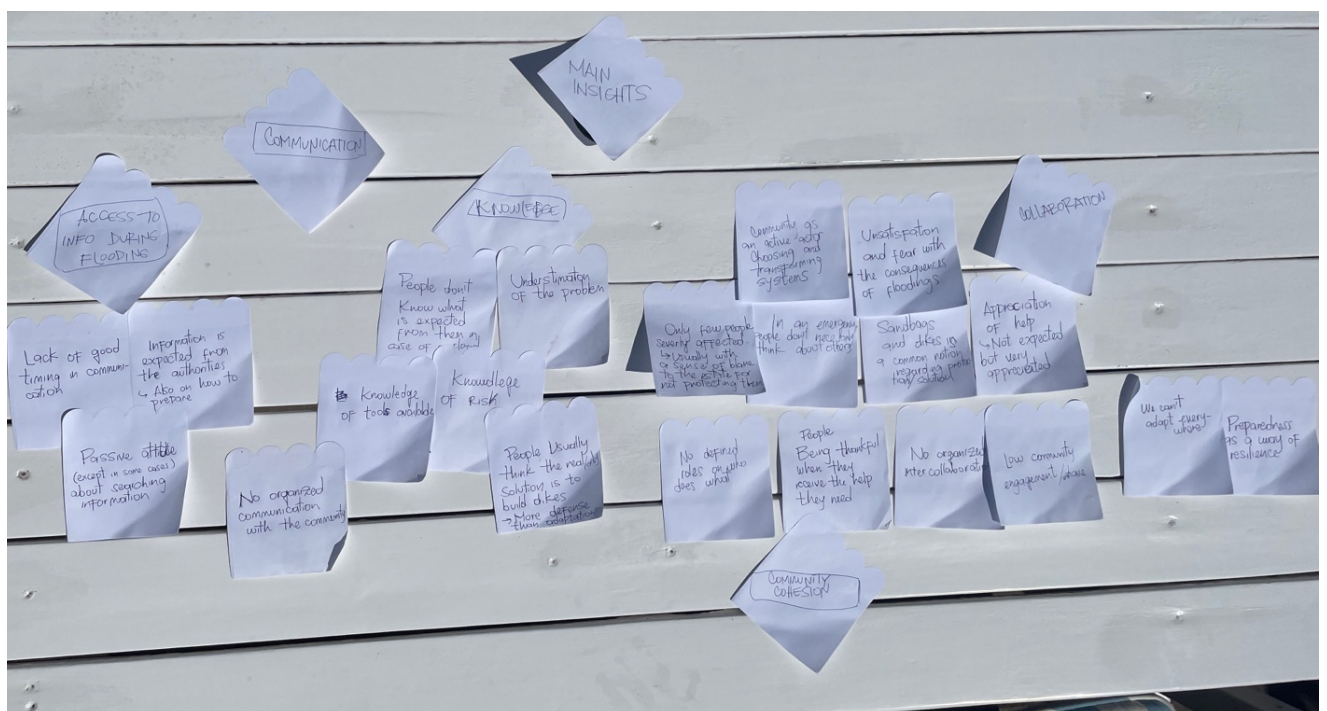 MAIN
INSIGHTS
COMMUNICATION
ACCESS TO
INFO DURING
FLOODING
KNOWLEDGE
COLLABORATION
Lack of good
timing in communi-
cation
Information is
expected from
the authorities
↳ Also on how to
prepare
Passive
(except in some cases)
about searching
information
No organized
communication
with the community
People don't
Know what
is expected
from them in
case of a
Understimation
of the problem
Knowledge
of tools available
Knowdlege
OF RISK
People Usually
think the
solution is to
build dikes
→ More defense
than adaptation
Community as
an active actor
Choosing and
transforming
systems
Unsatisfation
and fear with
the consequences
of floodings
Only few people
severity affected
↳ Usually with
a sense of blame
to the for
not protecting them
In an emergency
people don't necessarily
think about others
Sandbags
and dikes is
a common notion
regarding protec-
tion solution
Appreciation
of help
↳ Not expected
but very
appreciated
No defined
roles on who
does what
People
Being thankful
when they
receive the help
they need
No organized
inter collaboration
Low community
engagement/
We can't
adapt every-
where
Preparedness
as a way of
resilience
COMMUNITY
COHESION